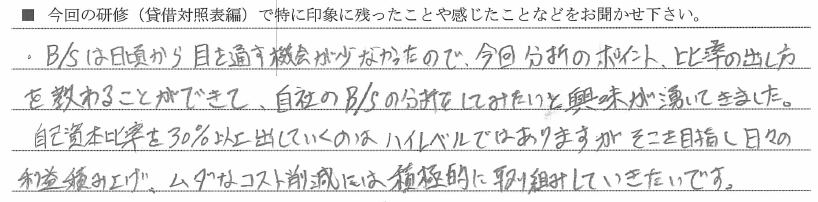 ■ 今回の研修（貸借対照表編）で特に印象に残ったことや感じたことなどをお聞かせ下さい。
・B/Sは日頃から目を通す機会が少なかったので、今回分析のポイント、比率の出し方
を教わることができて、自社のB/Sの分析をしてみたいと興味が湧いてきました。
自己資本比率を30%以上出していくのはハイレベルではありますがそこを目指し日々の
利益積み上げ、ムダなコスト削減には積極的に取り組みしていきたいです。